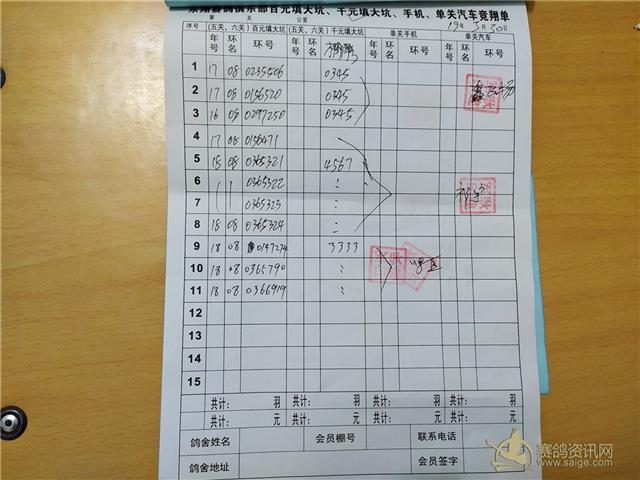 翔赛鸽俱乐部百元填大坑、千元填大坑、手机、单关汽车竞翔单
第 关 公里 19年3月30日
序号 (五关、六关)百元填大坑 (五关、六关)千元填大坑 单关手机 单关汽车
年号 环名 环号 年号 环名 年号 环名 环号 年号 环名 环号
1 17 08 0235506 0345
2 17 08 0156520 0345
3 16 08 0297250 0345
4 17 08 0156471
5 18 08 0365321 4567
6 0365322
7 0365323
8 18 08 0365324
9 18 08 0147274 3333
10 18 08 0365790
11 18 08 0366919
12
13
14
15
共计: 羽 共计: 羽 共计: 羽 共计: 羽
共计: 元 共计: 元 共计: 元 共计: 元
鸽舍姓名 会员棚号 联系电话
鸽舍地址 会员签字
赛鸽资讯网
www.saige.com